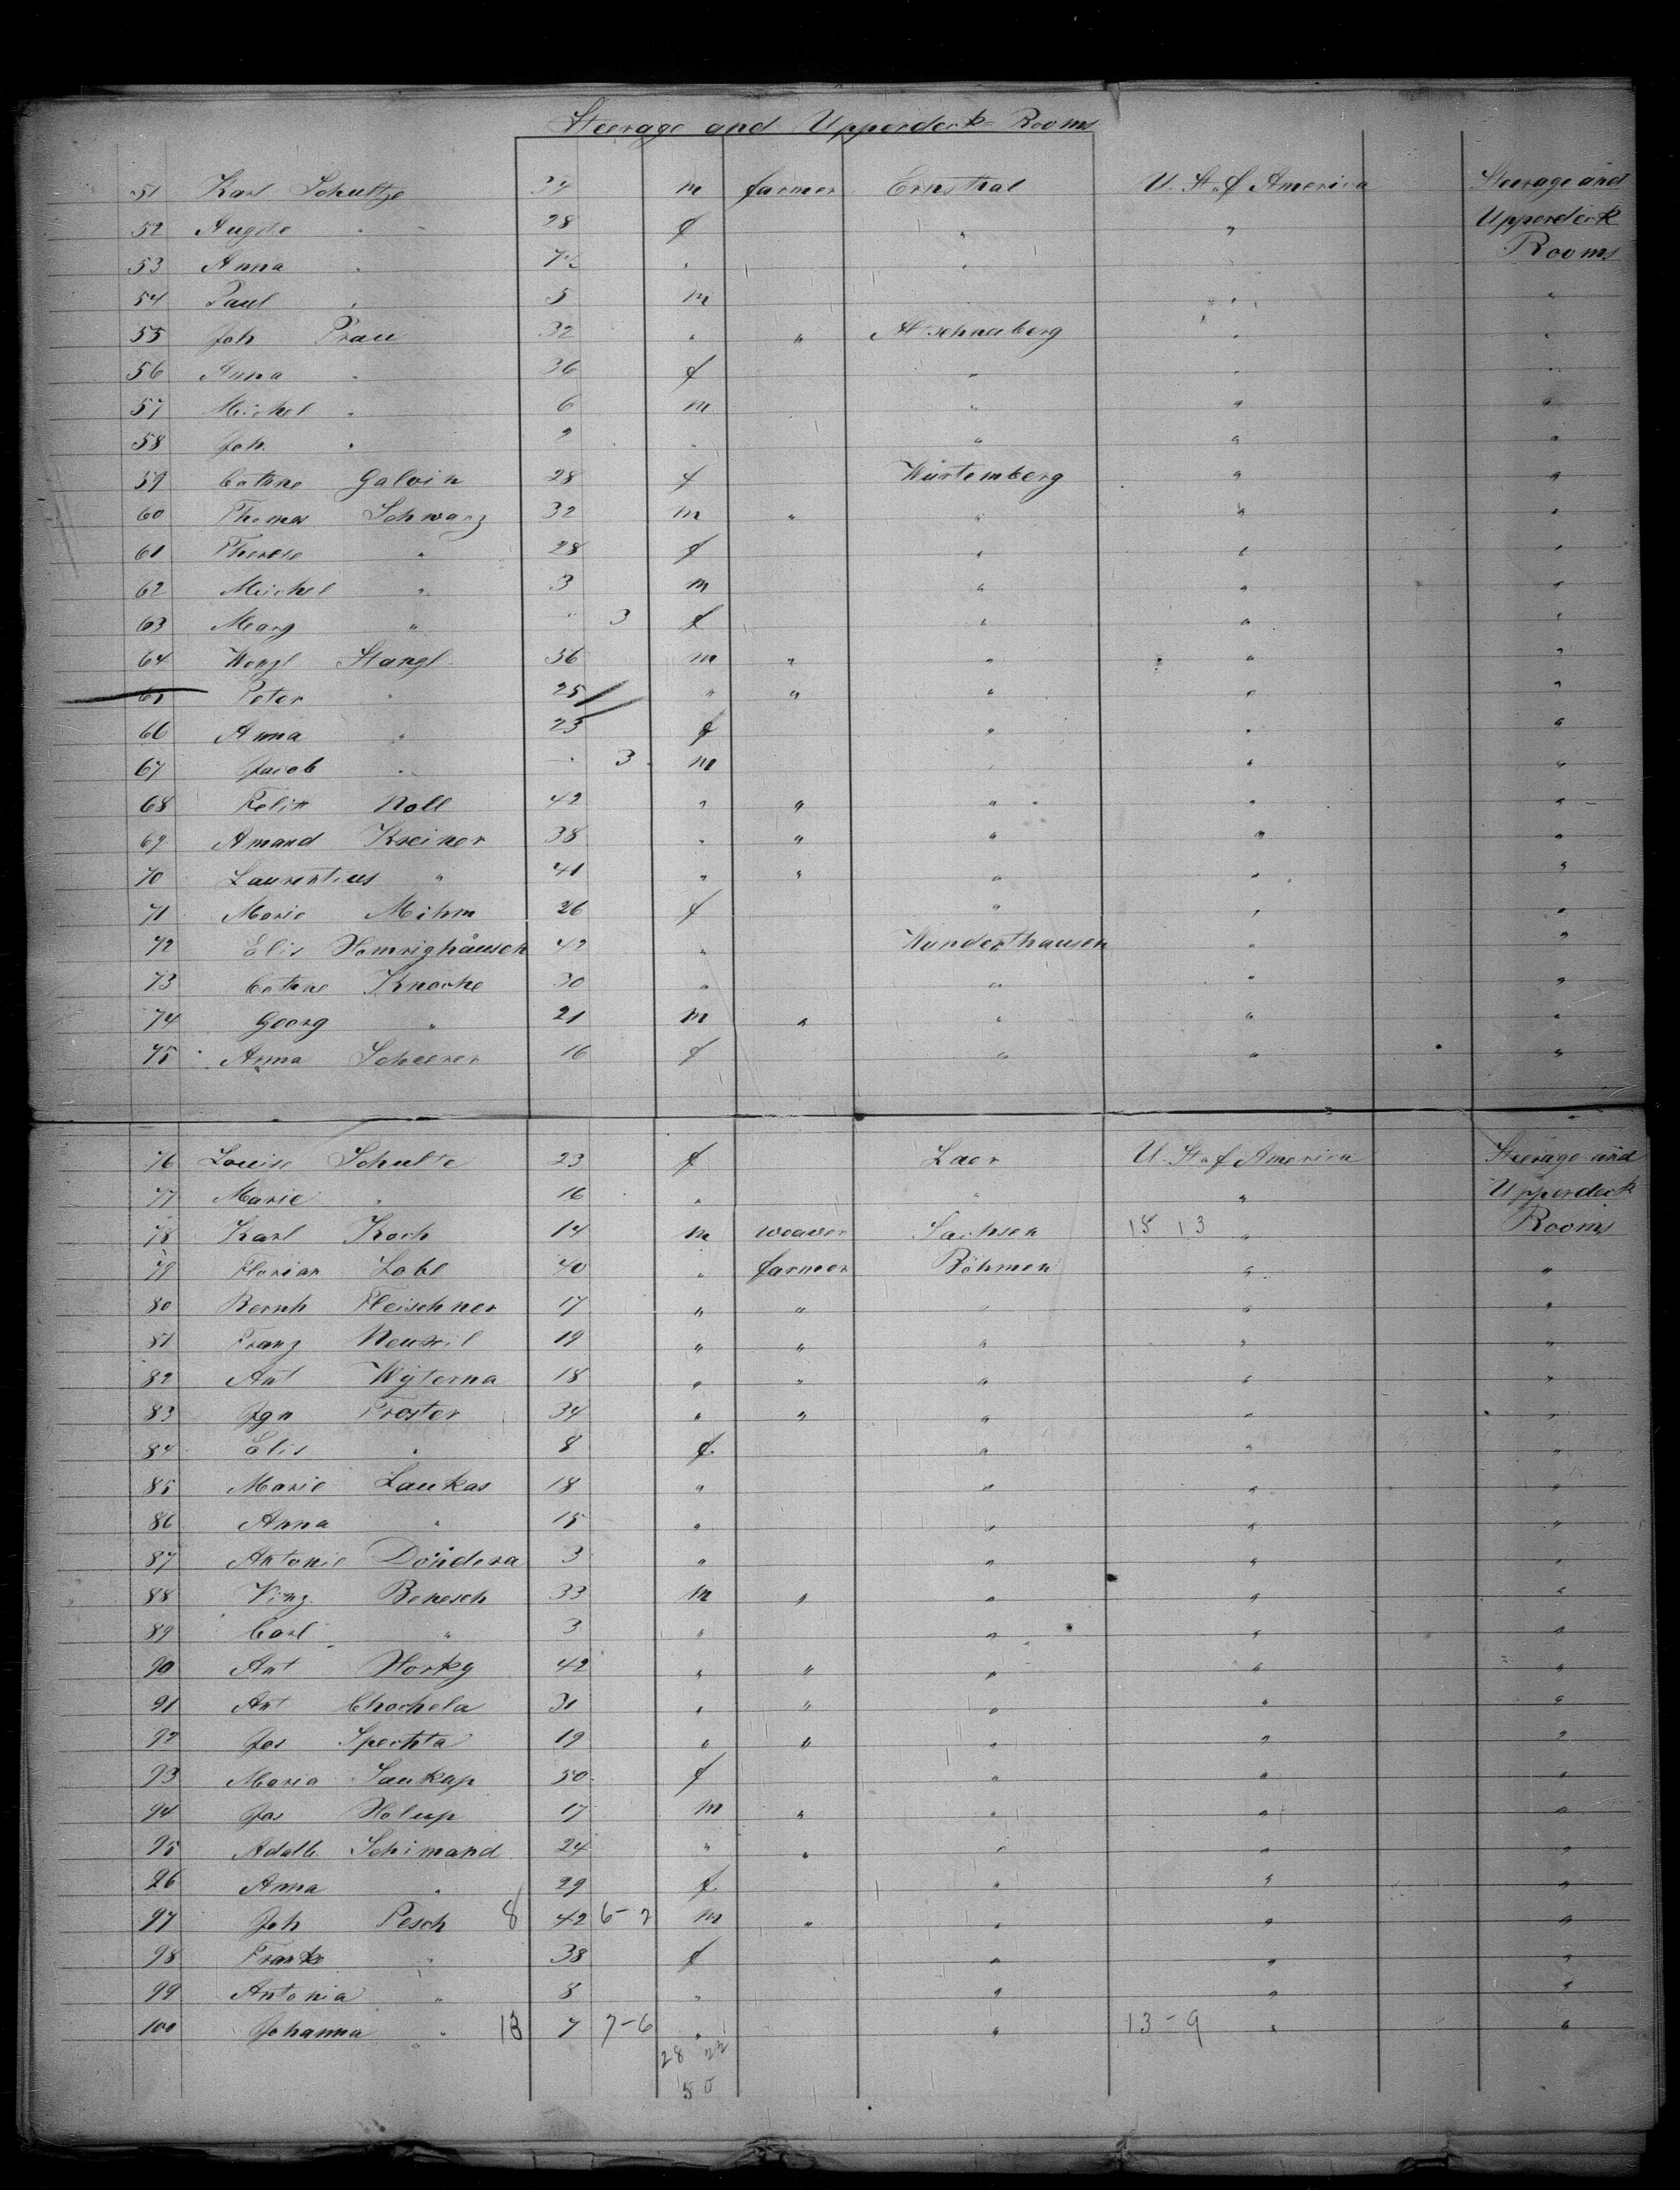 Steerage and Upperdeck Rooms
51 Karl Schultze 34 m farmer Ernsthal U. St of America Steerage and
52 Augste " 28 f " " Upperdeck
53 Anna " " " " Rooms
54 Paul " 5 m " "
55 Joh Prau 32 " " Altschneeberg " "
56 Anna " 36 f " " "
57 Michel " 6 m " " "
58 Joh. " " " " "
59 Cathne Galvin 28 f Würtemberg " "
60 Thomas Schwarz 32 m " " " "
61 Therese " 28 f " " "
62 Michel " 3 m " " "
63 Marg " " 3 f " " "
64 Wenzl Stangl 36 m " " " "
65 Peter " 25 " " " " "
66 Anna " 23 f " " "
67 Jacob " - 3 m " " "
68 Felix Noll 42 " " " " "
69 Amand Kreiner 38 " " " " "
70 Laurentius " 41 " " " " "
71 Marie Mihm 26 f " " "
72 Elis Homrighäusen 42 " Wunderthausen " "
73 Cathne Knoche 30 " " " "
74 Georg " 21 m " " " "
75 Anna Scheerer 16 f " " "
76 Louise Schulte 23 f Laer U. St of America Steerage and
77 Marie " 16 " " " Upperdeck
78 Karl Koch 14 m weaver Sachsen 15 13 " Rooms
79 Florian Lobl 40 " farmer Böhmen " "
80 Bernh Fleischner 17 " " " " "
81 Franz 19 " " " " "
82 Ant Wyterna 18 " " " " "
83 Ign Froster 34 " " " " "
84 Elis " 8 f " " "
85 Marie Laukas 18 " " " "
86 Anna " 15 " " " "
87 Antonie Döndera 3 " " " "
88 Vinz Benesch 33 m " " " "
89 Carl " 3 " " " "
90 Ant Horky 42 " " " " "
91 Ant Chochela 31 " " " " "
92 Jos Spechta 19 " " " " "
93 Maria Saukap 50 f " " "
94 Jos Holup 17 m " " " "
95 Adalb Schimand 24 " " " " "
96 Anna " 29 f " " "
97 Joh Pesch 8 42 6-2 m " " " "
98 " 38 f " " "
99 Antonia " 8 " " " "
100 Johanna " 13 7 7-6 " " 13-9 " "
28 22
50